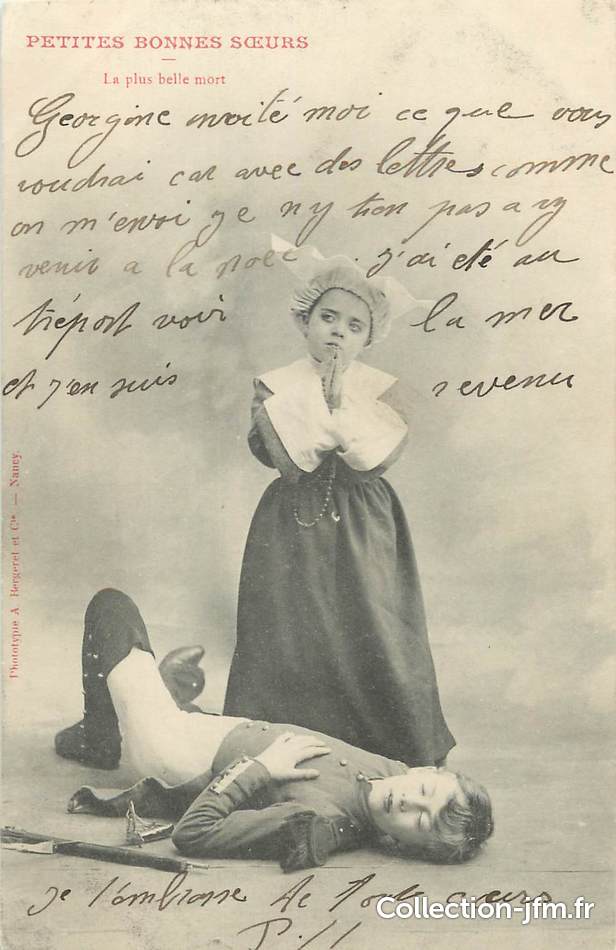 PETITES BONNES SŒURS
La plus belle mort
Georgine invité moi ce que vous
voudrai car avec des lettres comme
on m'envoi je n'y tien pas a vy
venir a la noce. j'ai été au
tréport voir la mer
et j'en suis revenu
Phototypie A. Bergeret et Cie. — Nancy.
je t'embrasse de tout cœurs
Collection-jfm.fr